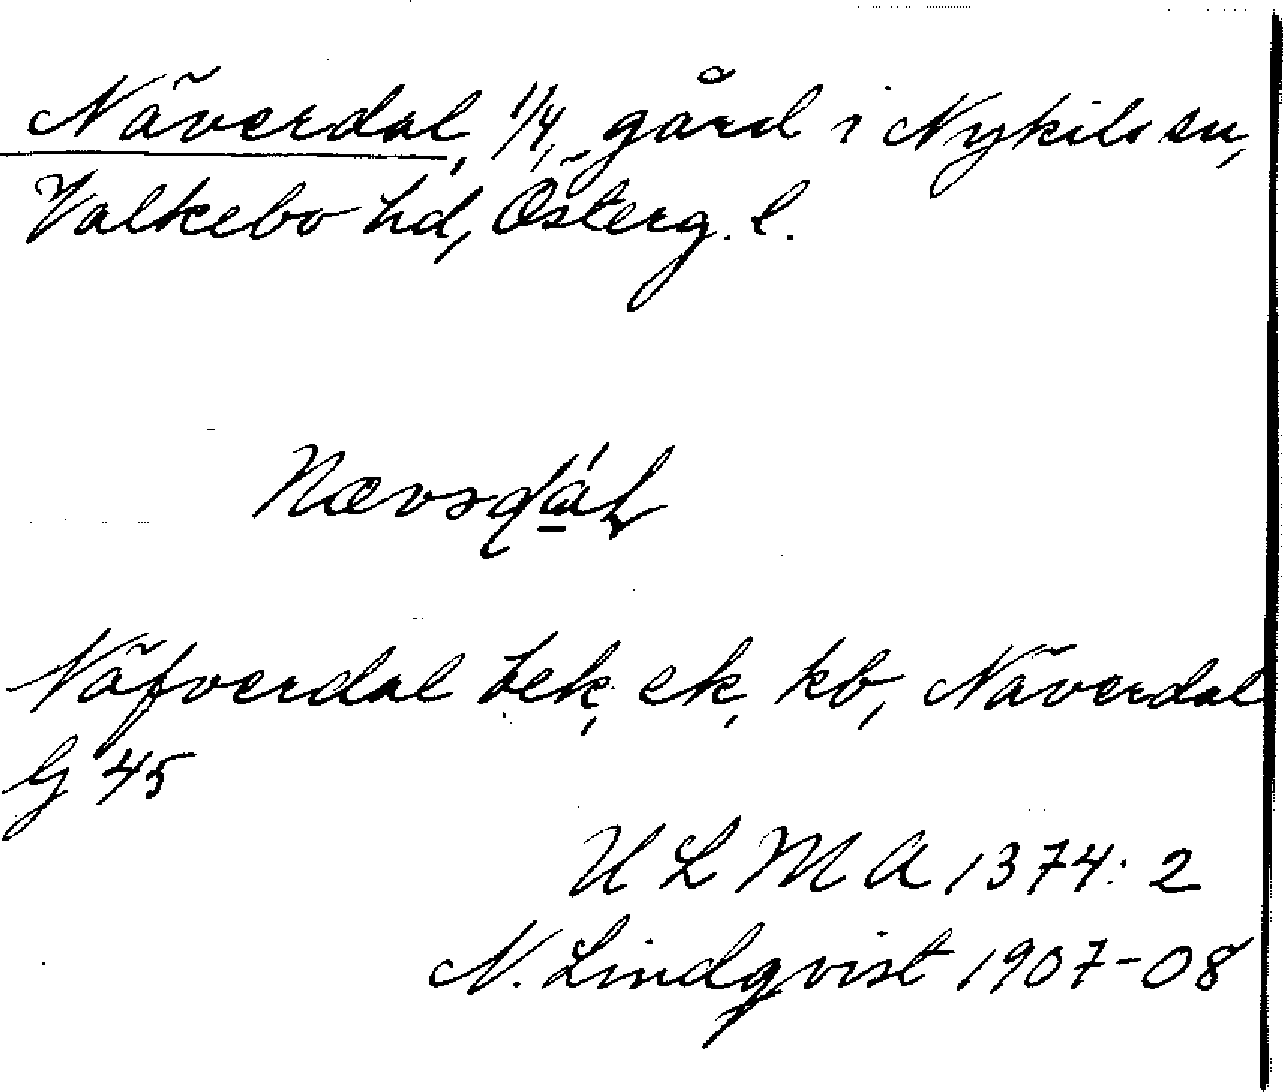 Näverdal, 1/4, gård i Nykils sn,
Valkebo hd, Österg. l.
Näfverdal bek, ek, kb, Näverdal
G 45
U L M A 1374: 2
N. Lindqvist 1907-08